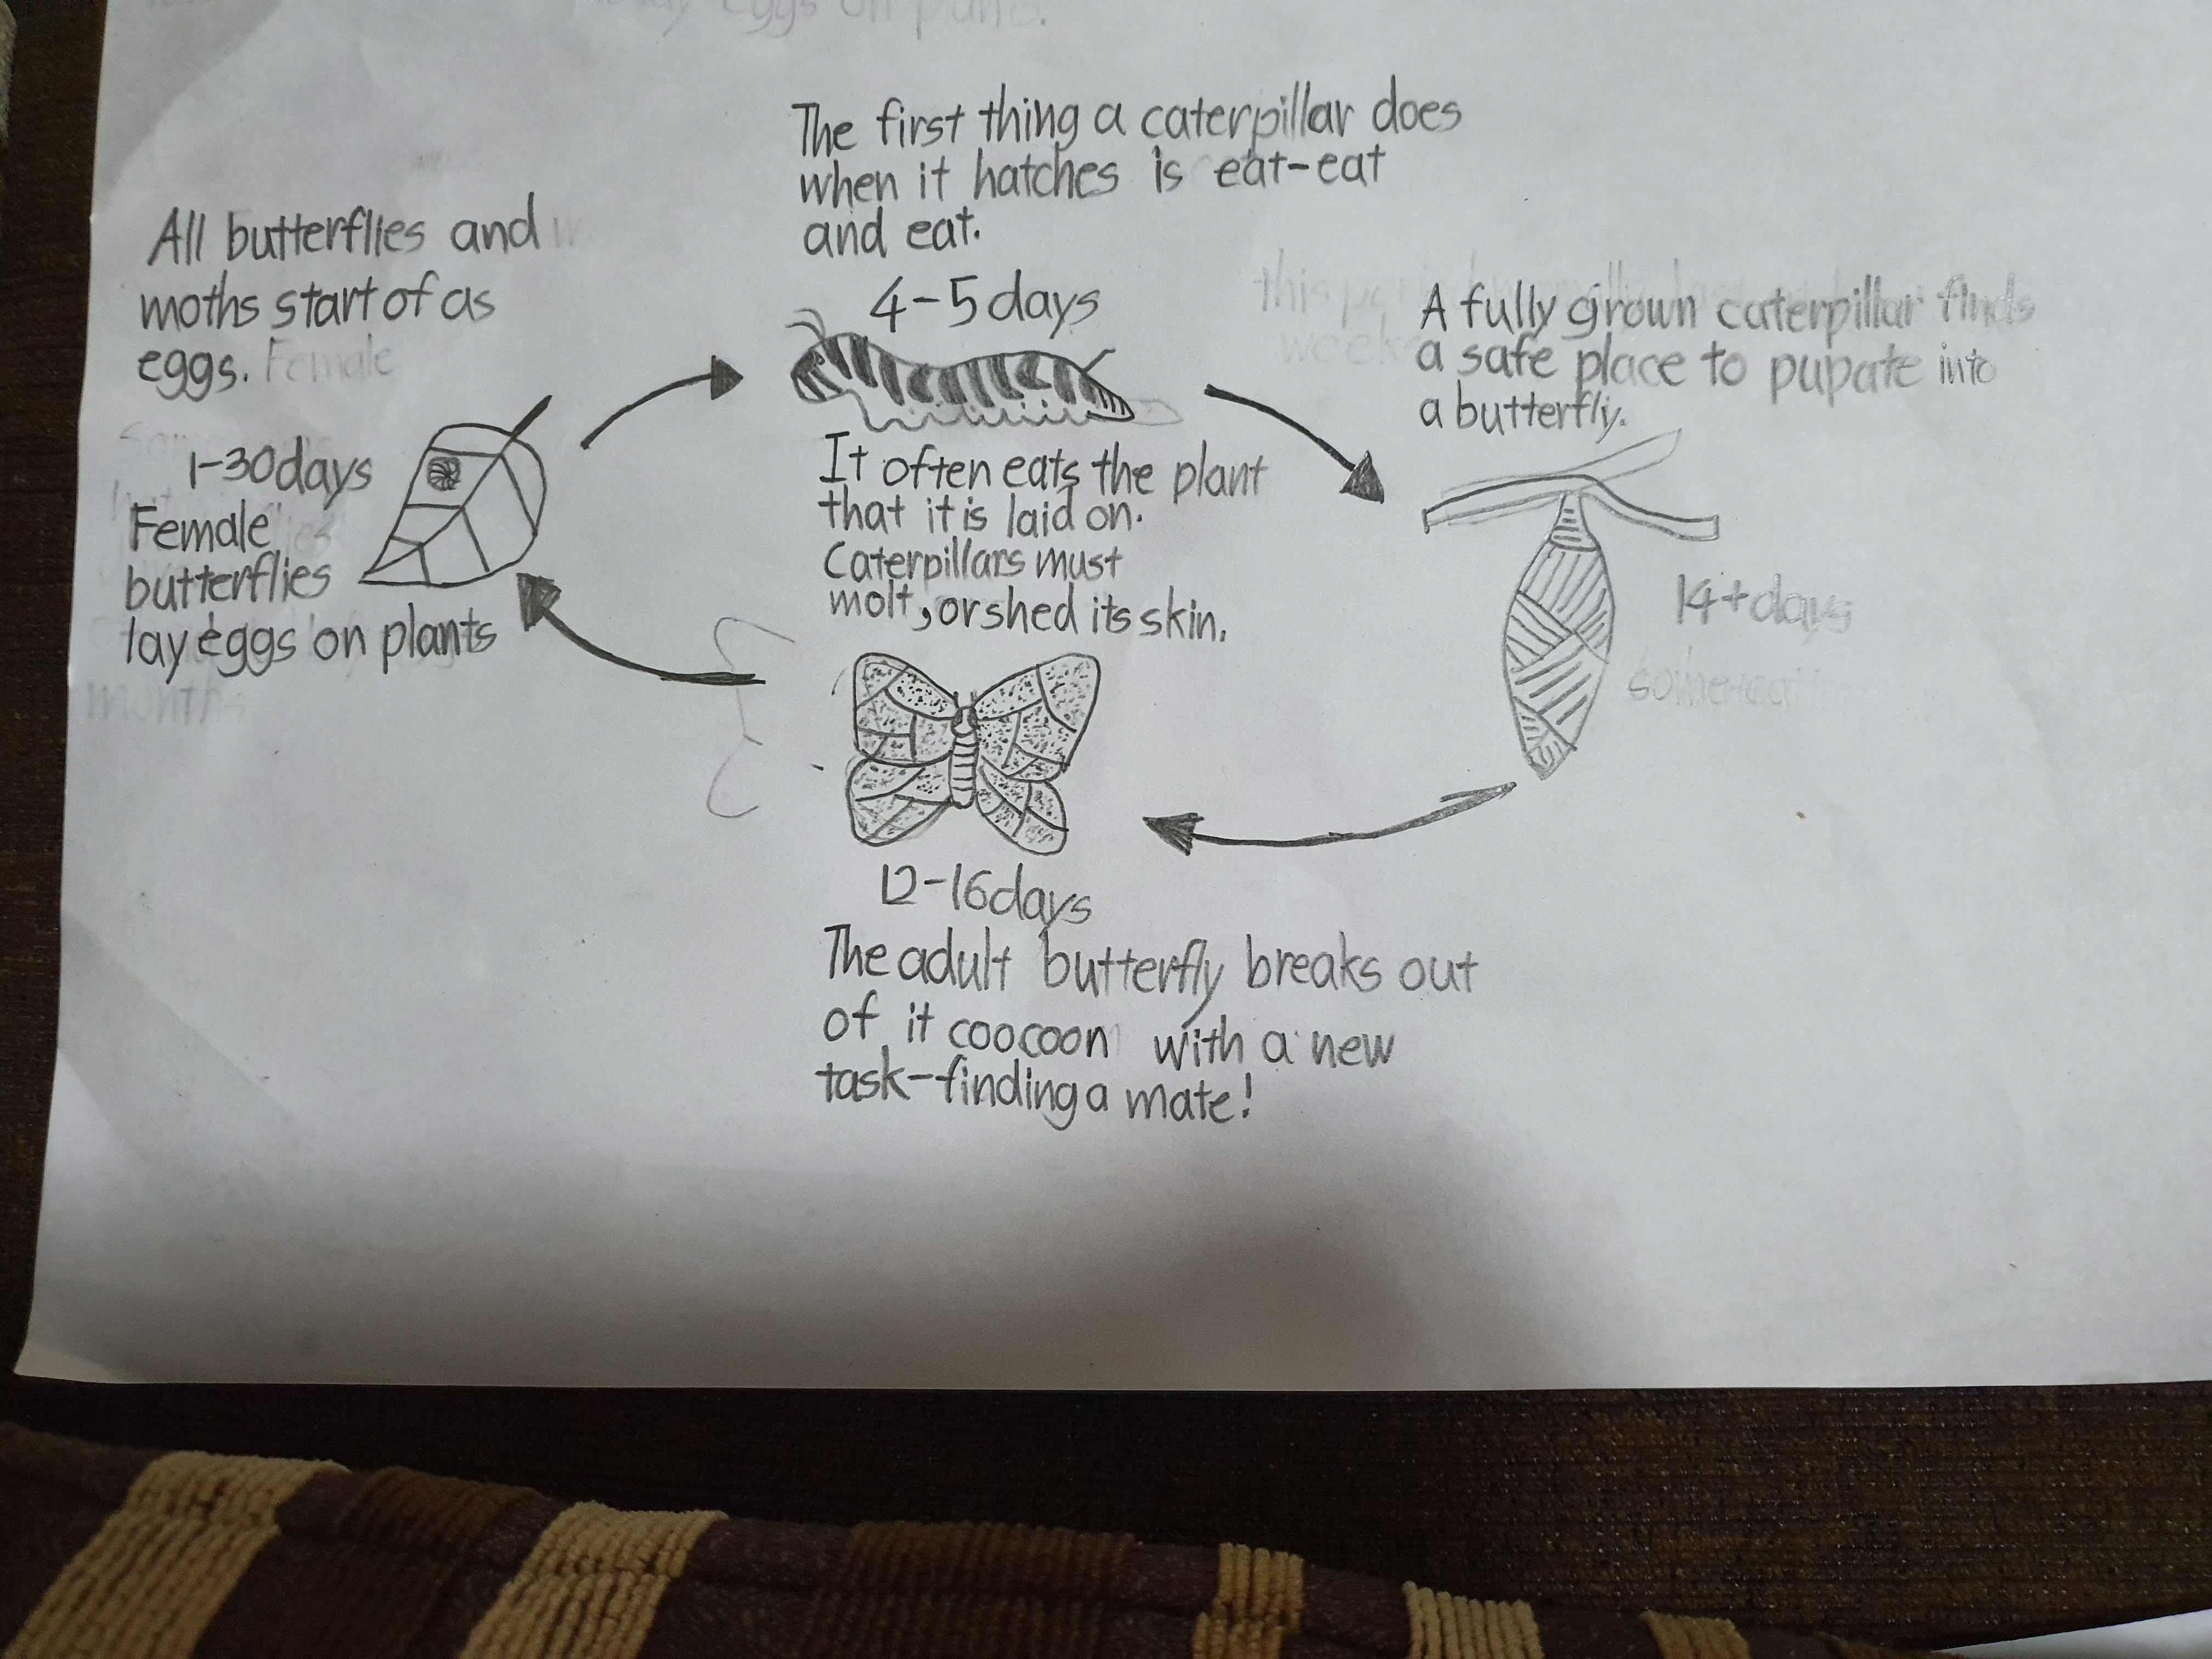 lay eggs on plants.
All butterflies and
moths start of as
eggs. Female
1-30days
Female
butterflies
lay eggs on plants
months
The first thing a caterpillar does
when it hatches is eat-eat
and eat.
4-5 days
It often eats the plant
that it is laid on.
Caterpillars must
molt, or shed its skin.
this
weeks
A fully grown caterpillar finds
a safe place to pupate into
a butterfly.
14+days
some
12-16days
The adult butterfly breaks out
of it coocoon with a new
task-finding a mate!